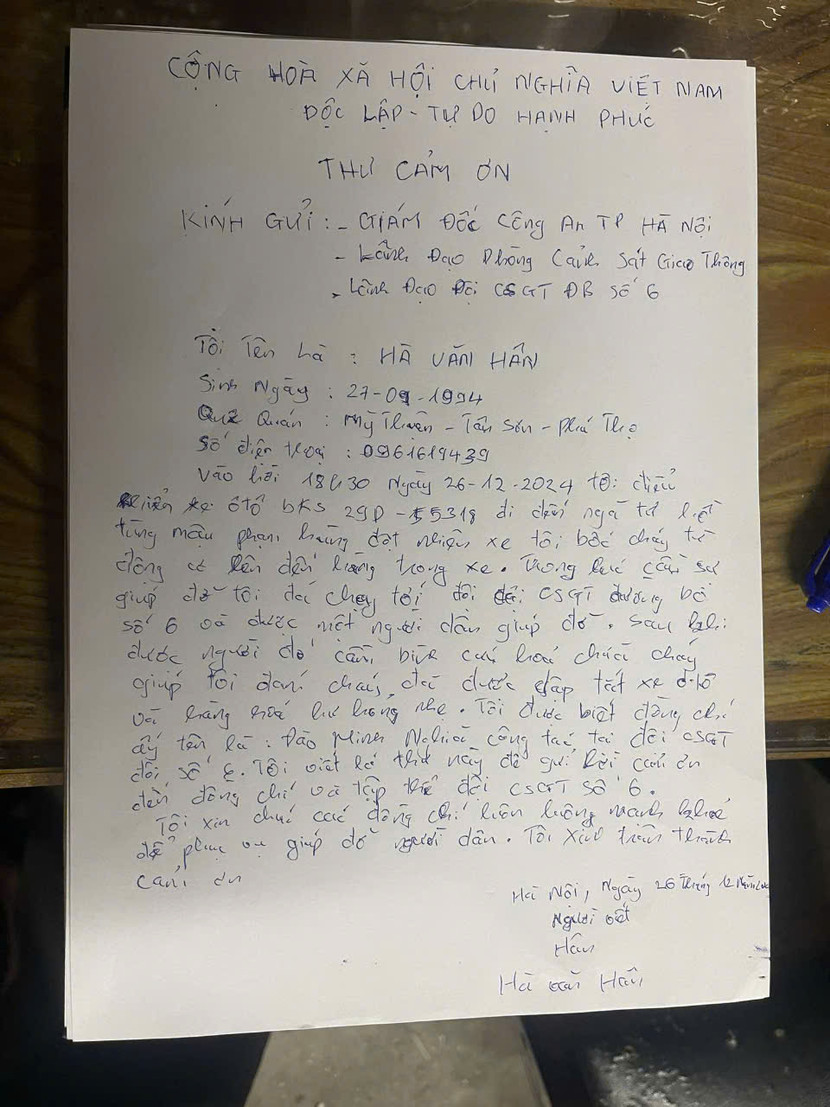 CỘNG HOÀ XÃ HỘI CHỦ NGHĨA VIỆT NAM
ĐỘC LẬP - TỰ DO HẠNH PHÚC
THƯ CẢM ƠN
KÍNH GỬI : - GIÁM ĐỐC Công An TP HÀ NỘI
- Lãnh Đạo Phòng Cảnh Sát Giao Thông
- Lãnh Đạo Đội CSGT ĐB số 6
Tôi Tên Là : HÀ VĂN HÂN
Sinh Ngày : 27-09-1994
Quê Quán : Mỹ Thuận - Tân Sơn - Phú Thọ
Số điện thoại : 0961619439
Vào hồi 18h30 Ngày 26-12-2024 tôi điều
khiển xe ôtô BKS 29D-55318 đi đến ngã tư
phạm hùng đột nhiên xe tôi bốc cháy từ
động cơ lên đến hàng trong xe. Trong lúc cần sự
giúp đỡ tôi đã chạy tới đội CSGT đường bộ
số 6 và được một người dân giúp đỡ. Sau khi
được người đó cầm bình cứu hoả chữa cháy
giúp tôi đám cháy đã được dập tắt xe ôtô
và hàng hoá hư hỏng nhẹ. Tôi được biết đồng chí
ấy tên là : Đào Minh Nghĩa công tác tại đội CSGT
đội số 6. Tôi viết lá thư này để gửi lời cảm ơn
đến đồng chí và tập thể đội CSGT số 6.
Tôi xin chúc các đồng chí luôn luôn mạnh khoẻ
để phục vụ giúp đỡ người dân. Tôi xin trân thành
cảm ơn
Hà Nội, Ngày 26 tháng 12
Người viết
Hân
Hà văn Hân